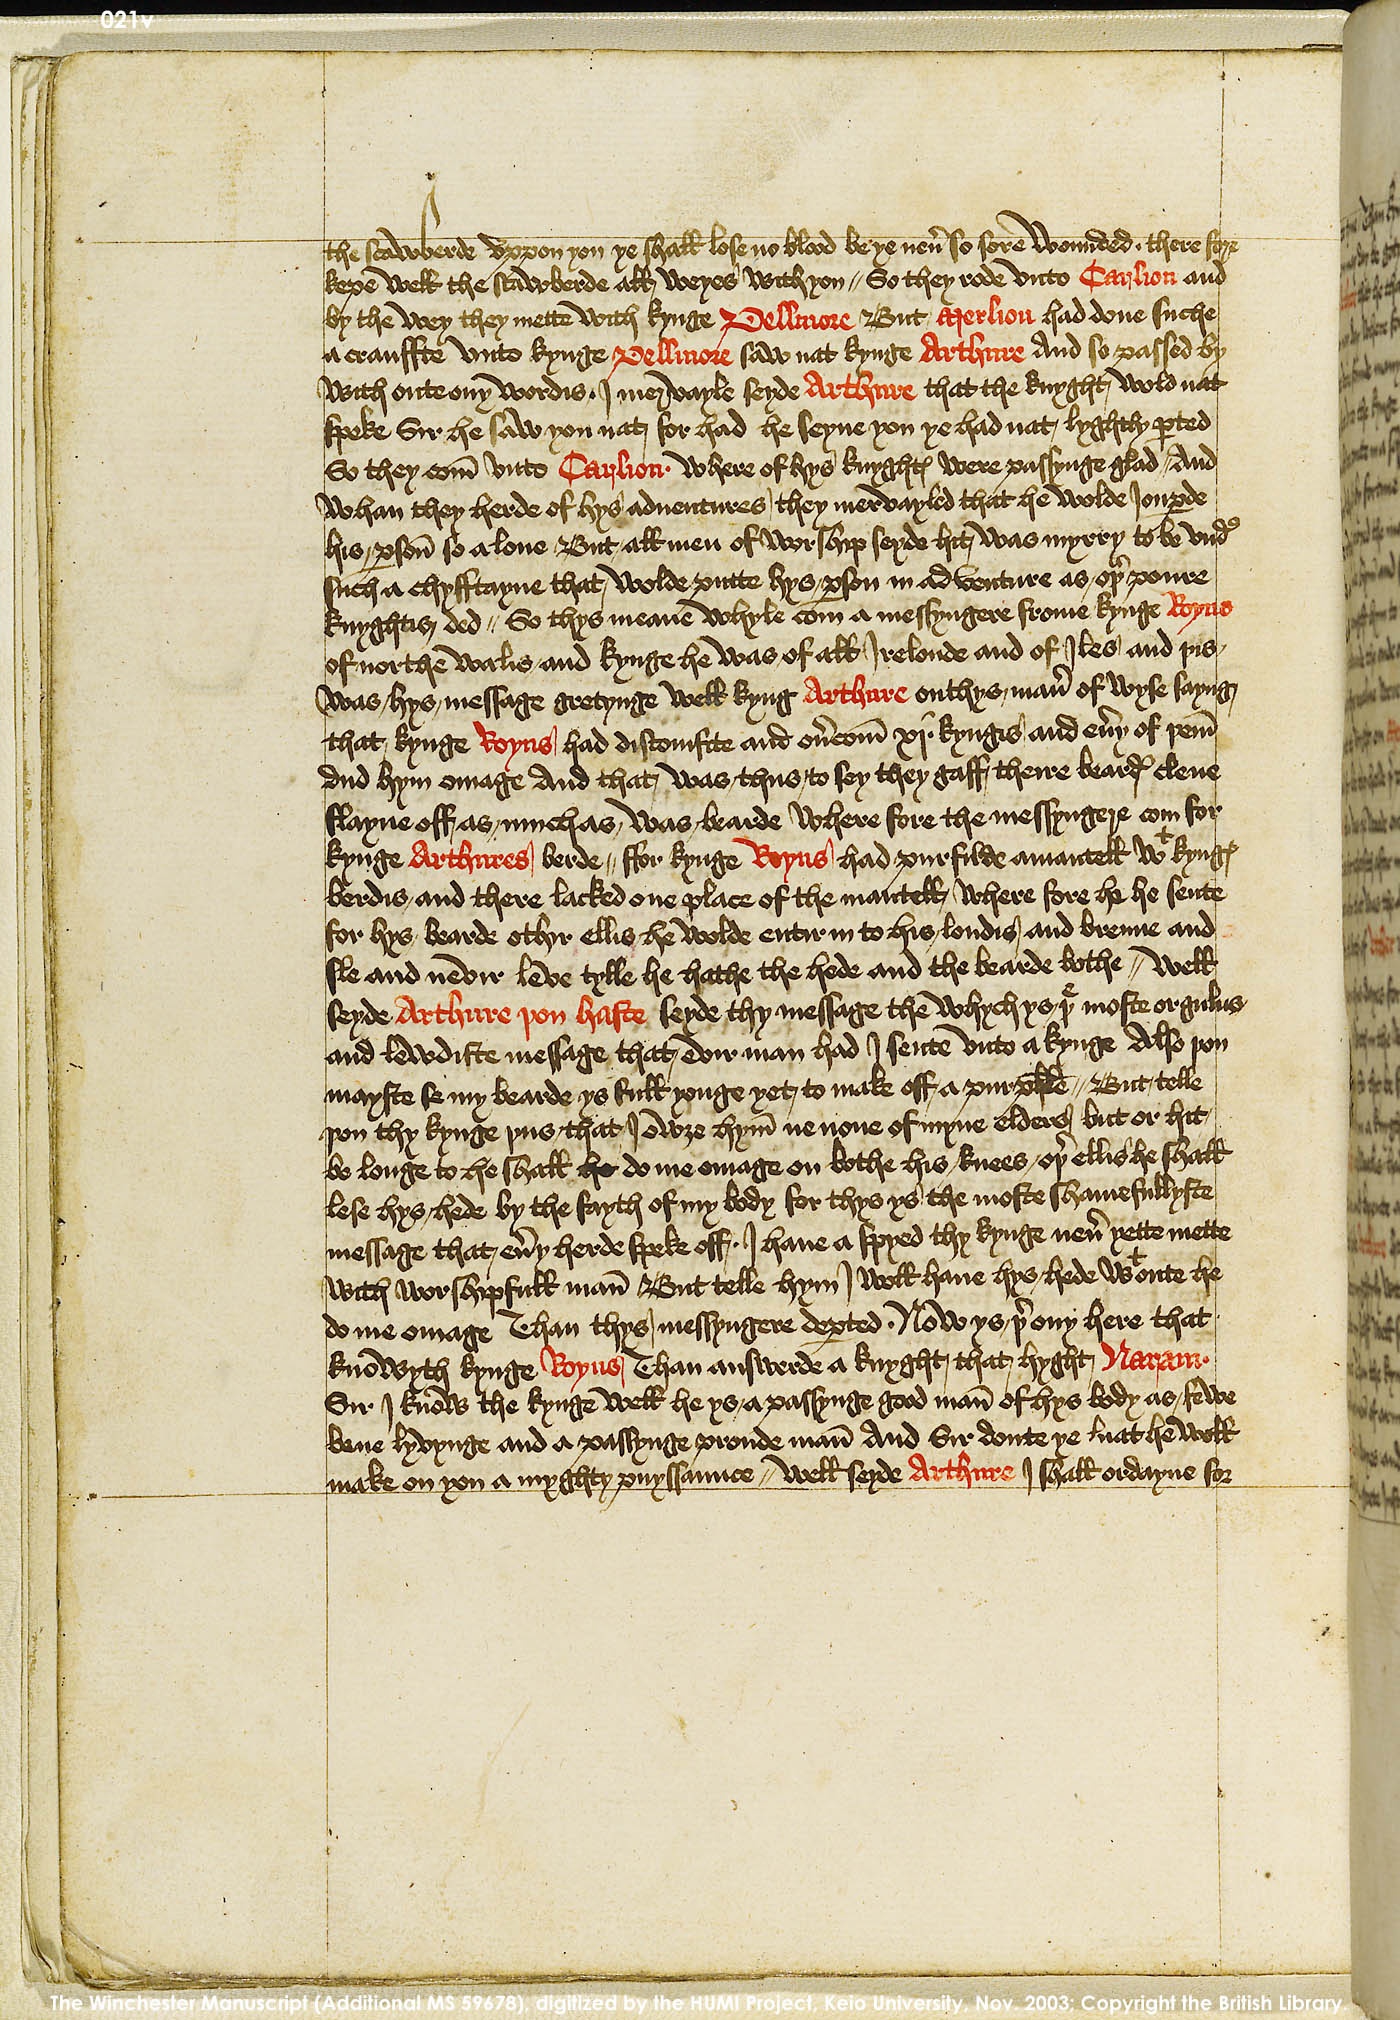 021v
the scawberde vppon you ye shall lose no blood be ye neuer so sore wounded · there fore
kepe well the scawberde all weyes with you // So they rode vnto Carlion and
by the wey they mette with kynge Pellinore But Merlion had done suche
a crauffte vnto kynge Pellinore saw nat kynge Arthure And so passed by
with oute ony wordis · I mervayle seyde Arthure that the knyght wold nat
speke Sir he saw you nat for had he seyne you ye had nat lyghtly ꝑted
So they com vnto Carlion · where of hys knyghtꝭ were passynge glad / And
whan they herde of hys aduentures they mervayled that he wolde Ioupde
his ꝑson so a lone But all men of worship seyde hit was myrry to be vndꝰ
such a chyfftayne that wolde putte hys ꝑson in adventure as oþʳ poure
knyghtis ded // So thys meane whyle com a messyngere frome kynge Royns
of northe walis and kynge he was of all Irelonde and of Iles and þis
was hys message gretynge well kyng Arthure on thys maner of wyse sayng
that kynge Royns had discomfite and ouercom xj kyngis and euery of þem
dud hym omage And that was thus to sey they gaff theire beardꝭ clene
flayne off as much as was bearde where fore the messyngere com for
kynge Arthures berde // ffor kynge Royns had purfilde a mantell wᵗ kyngꝭ
berdis and there lacked one place of the mantell where fore he he sente
for hys bearde othir ellis he wolde entir in to his londis and brenne and
sle and nevir leve tylle he hathe the hede and the bearde bothe // Well
seyde Arthure þou haste seyde thy message the whych ys þᵉ moste orgulus
and lewdiste message that evir man had I sente vnto a kynge Also þou
mayste se my bearde ys full yonge yet to make off a purphile // But telle
þou thy kynge þus that I owȝe hym ne none of myne elders but or hit
be longe to he shall he do me omage on bothe his knees oþʳ ellis he shall
lese hys hede by the fayth of my body for thys ys the moste shamefullyste
message that euer y herde speke off · I haue a spyed thy kynge neuer yette mette
with worshipfull man But telle hym I woll haue hys hede wᵗoute he
do me omage Than thys messyngere deꝑted · Now ys þʳ ony here that
knowyth kynge Royns Than answerde a knyght that hyght Naram ·
Sir I know the kynge well he ys a passynge good man of hys body as fewe
bene lyvynge and a passynge proude man And Sir doute ye nat he woll
make on you a myghty puyssaunce // Well seyde Arthure I shall ordayne for
The Winchester Manuscript (Additional MS 59678), digitized by the HUMI Project, Keio University, Nov. 2003; Copyright the British Library.